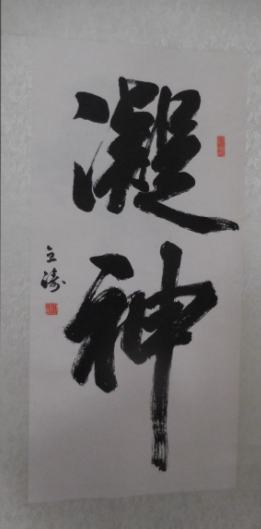 凝神
立涛